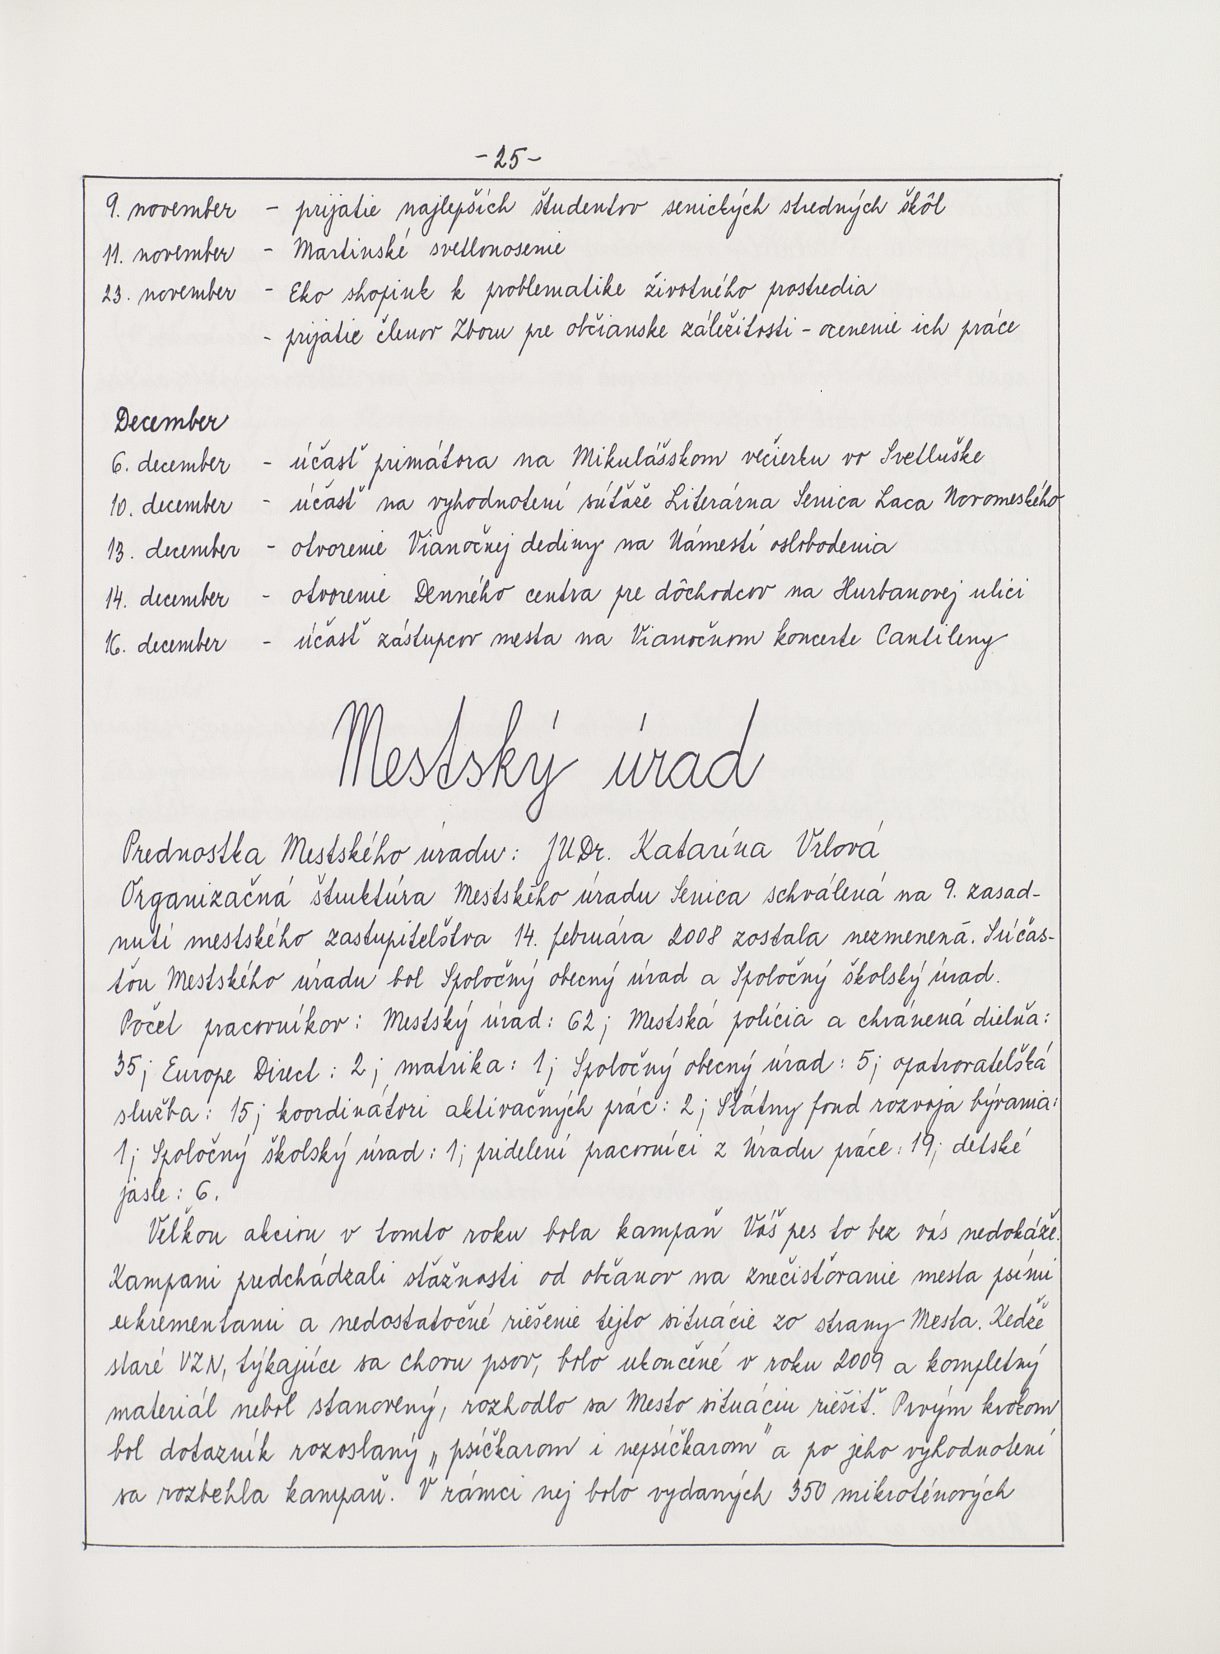 -25-
9. november - prijatie najlepších študentov senických stredných škôl
11. november - Martinské svetlonosenie
23. november - Eko shopink k problematike životného prostredia
- prijatie členov Zboru pre občianske záležitosti - ocenenie ich práce
December
6. december - účasť primátora na Mikulášskom večierku vo Svetluške
10. december - účasť na vyhodnotení súťaže Literárna Senica Laca Novomeského
13. december - otvorenie Vianočnej dediny na Námestí oslobodenia
14. december - otvorenie Denného centra pre dôchodcov na Hurbanovej ulici
16. december - účasť zástupcov mesta na Vianočnom koncerte Cantileny
Mestský úrad
Prednostka Mestského úradu: JUDr. Katarína Vrlová
Organizačná štruktúra Mestského úradu Senica schválená na 9. zasad-
nutí mestského zastupiteľstva 14. februára 2008 zostala nezmenená. Súčas-
ťou Mestského úradu bol Spoločný obecný úrad a Spoločný školský úrad.
Počet pracovníkov: Mestský úrad: 62; Mestská polícia a chránená dielňa:
35; Europe Direct: 2; matrika: 1; Spoločný obecný úrad: 5; opatrovateľská
služba: 15; koordinátori aktivačných prác: 2; Štátny fond rozvoja bývania:
1; Spoločný školský úrad: 1; pridelení pracovníci z Úradu práce: 19; detské
jasle: 6.
Veľkou akciou v tomto roku bola kampaň Váš pes to bez vás nedokáže.
Kampani predchádzali sťažnosti od občanov na znečisťovanie mesta psími
exkrementami a nedostatočné riešenie tejto situácie zo strany Mesta. Keďže
staré VZN, týkajúce sa chovu psov, bolo ukončené v roku 2009 a kompletný
materiál nebol stanovený, rozhodlo sa Mesto situáciu riešiť. Prvým krokom
bol dotazník rozoslaný „psíčkarom i nepsíčkarom" a po jeho vyhodnotení
sa rozbehla kampaň. V rámci nej bolo vydaných 350 mikroténových